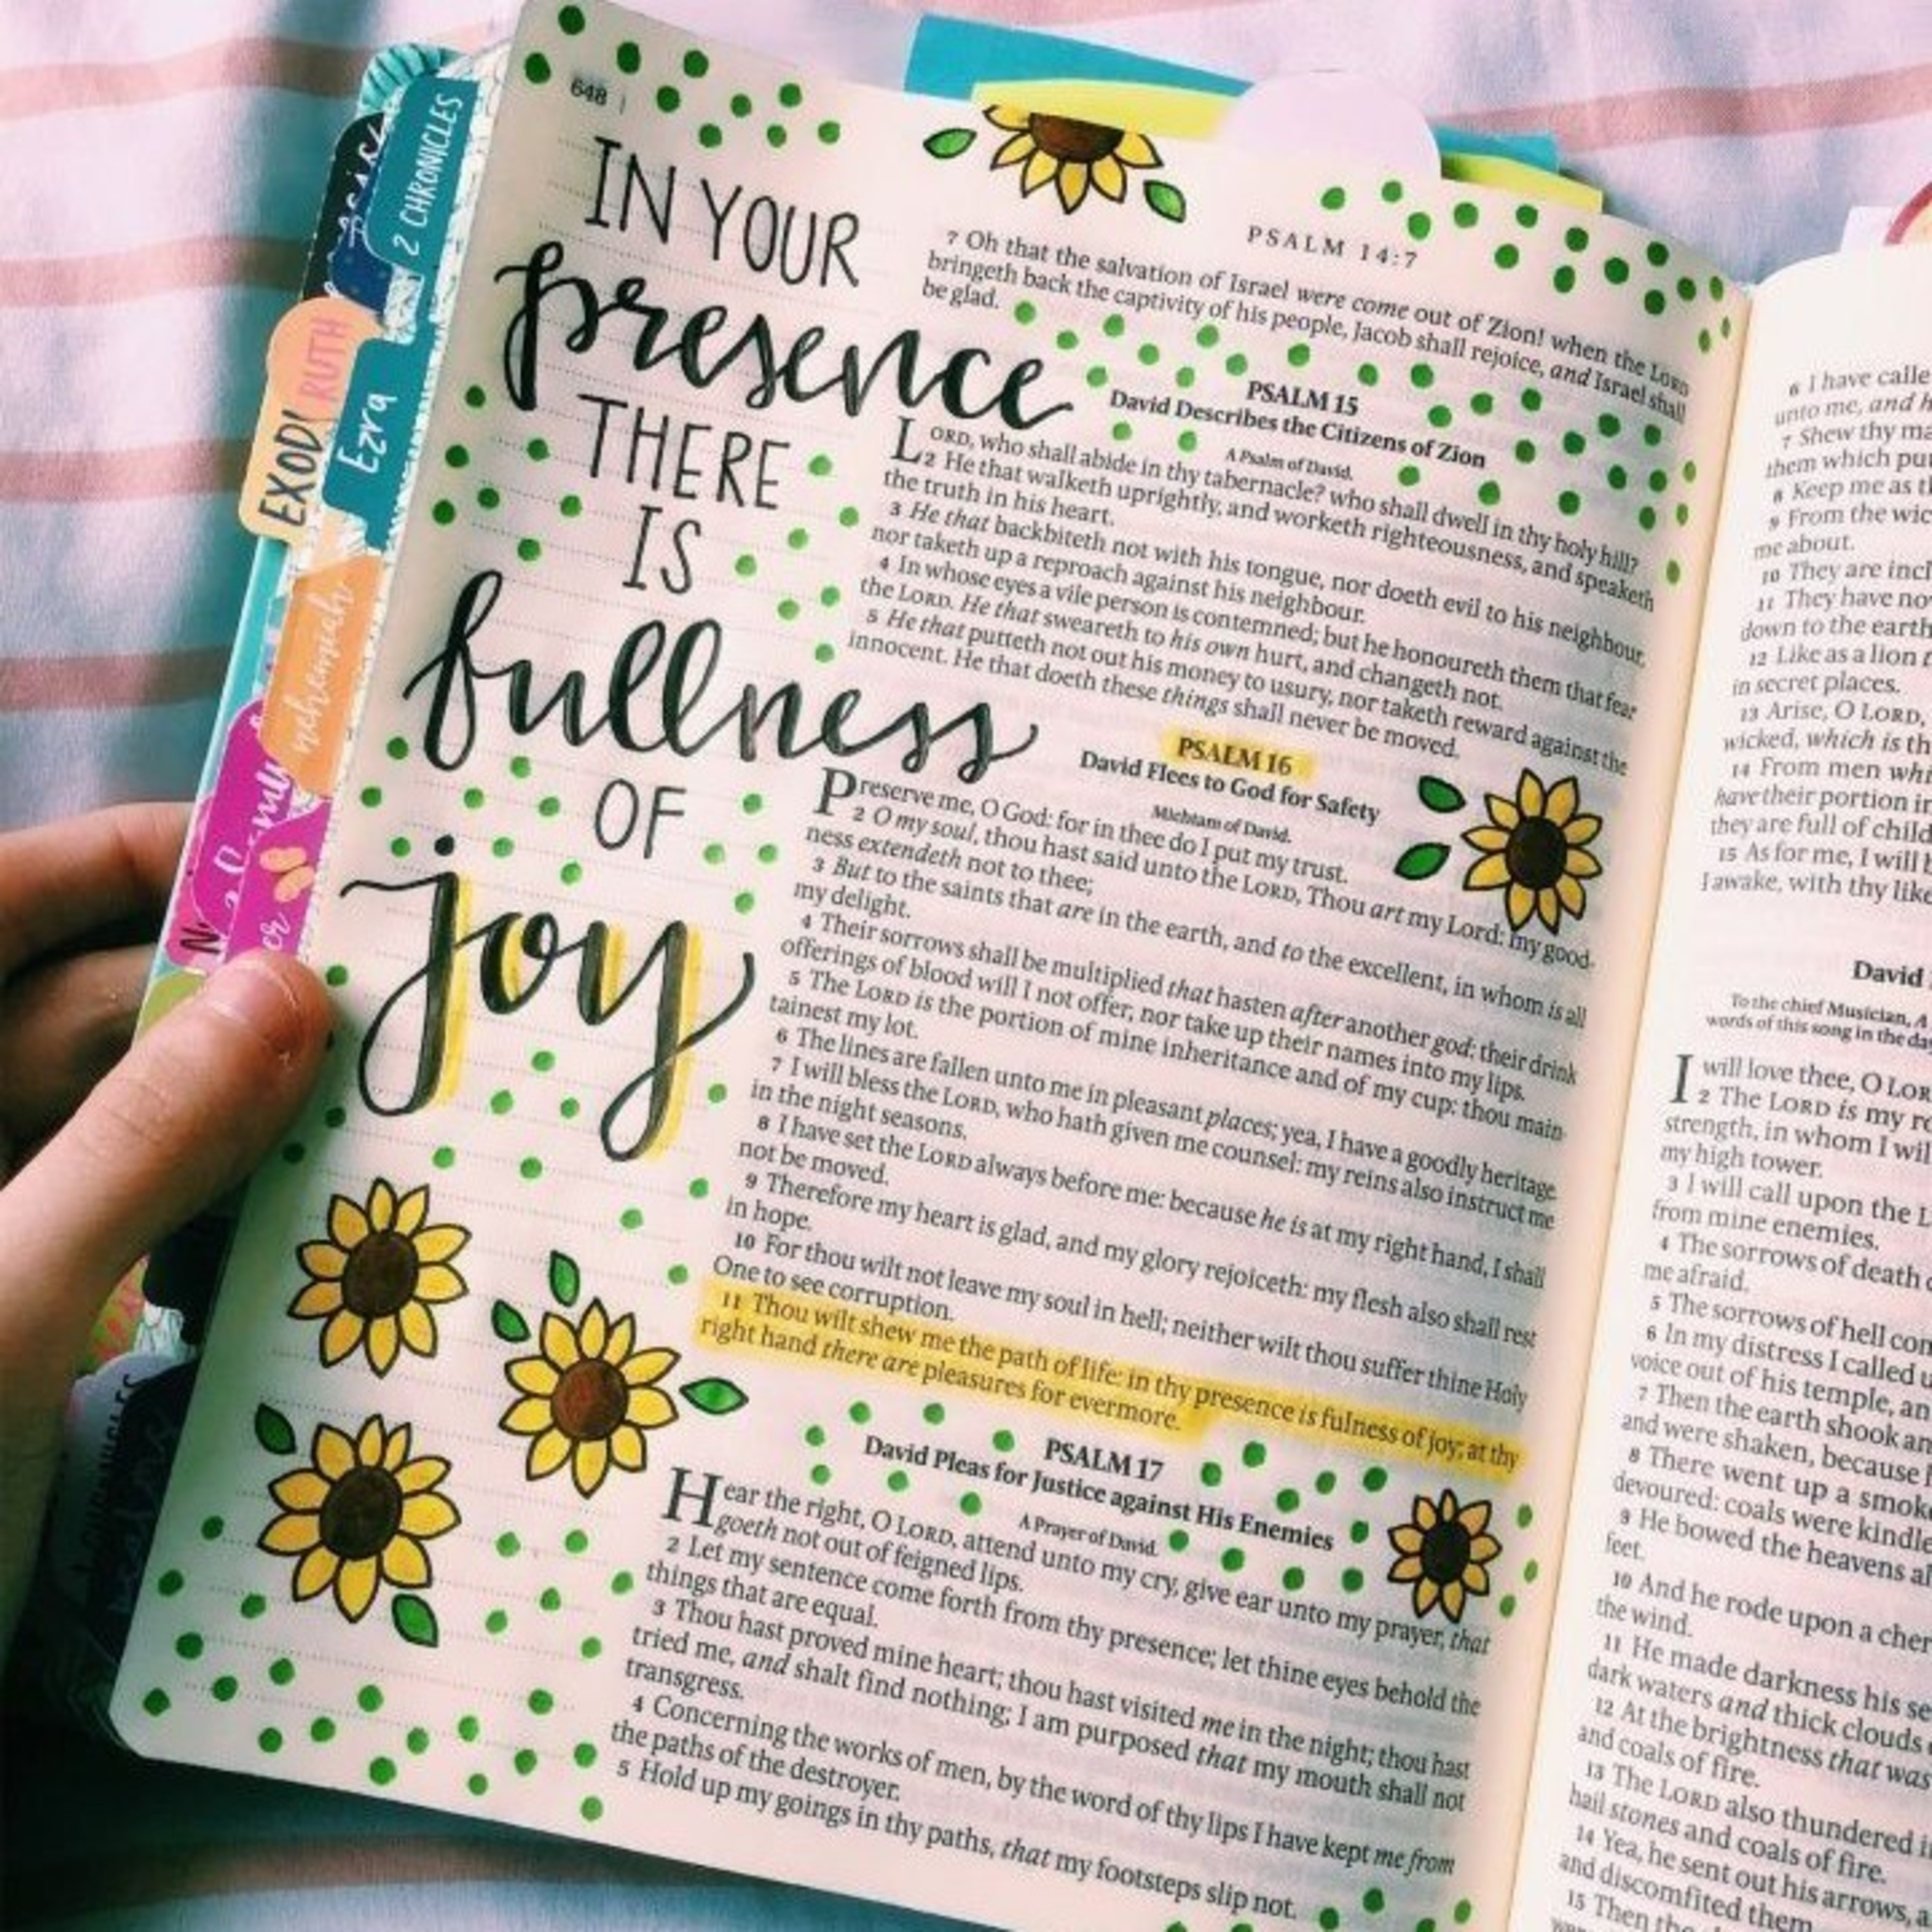 648
IN YOUR
presence
THERE
IS
fullness
OF
joy
2 CHRONICLES
RUTH
EXOD
Ezra
nehemiah
PSALM 14:7
7 Oh that the salvation of Israel were come out of Zion! when the LORD
bringeth back the captivity of his people, Jacob shall rejoice, and Israel shall
be glad.
PSALM 15
David Describes the Citizens of Zion
A Psalm of David.
LORD, who shall abide in thy tabernacle? who shall dwell in thy holy hill?
2 He that walketh uprightly, and worketh righteousness, and speaketh
the truth in his heart.
3 He that backbiteth not with his tongue, nor doeth evil to his neighbour,
nor taketh up a reproach against his neighbour.
4 In whose eyes a vile person is contemned; but he honoureth them that fear
the LORD. He that sweareth to his own hurt, and changeth not.
5 He that putteth not out his money to usury, nor taketh reward against the
innocent. He that doeth these things shall never be moved.
PSALM 16
David Flees to God for Safety
Michtam of David.
Preserve me, O God: for in thee do I put my trust.
2 O my soul, thou hast said unto the LORD, Thou art my Lord: my good-
ness extendeth not to thee;
3 But to the saints that are in the earth, and to the excellent, in whom is all
my delight.
4 Their sorrows shall be multiplied that hasten after another god: their drink
offerings of blood will I not offer, nor take up their names into my lips.
5 The LORD is the portion of mine inheritance and of my cup: thou main-
tainest my lot.
6 The lines are fallen unto me in pleasant places; yea, I have a goodly heritage.
7 I will bless the LORD, who hath given me counsel: my reins also instruct me
in the night seasons.
8 I have set the LORD always before me: because he is at my right hand, I shall
not be moved.
9 Therefore my heart is glad, and my glory rejoiceth: my flesh also shall rest
in hope.
10 For thou wilt not leave my soul in hell; neither wilt thou suffer thine Holy
One to see corruption.
11 Thou wilt shew me the path of life: in thy presence is fulness of joy; at thy
right hand there are pleasures for evermore.
PSALM 17
David Pleas for Justice against His Enemies
A Prayer of David.
Hear the right, O LORD, attend unto my cry, give ear unto my prayer, that
goeth not out of feigned lips.
2 Let my sentence come forth from thy presence; let thine eyes behold the
things that are equal.
3 Thou hast proved mine heart; thou hast visited me in the night; thou hast
tried me, and shalt find nothing; I am purposed that my mouth shall not
transgress.
4 Concerning the works of men, by the word of thy lips I have kept me from
the paths of the destroyer.
5 Hold up my goings in thy paths, that my footsteps slip not.
6 I have calle
unto me, and h
7 Shew thy ma
them which pu
8 Keep me as t
9 From the wic
me about.
10 They are incl
11 They have no
down to the earth
12 Like as a lion
in secret places.
13 Arise, O LORD,
wicked, which is th
14 From men whi
have their portion in
they are full of child
15 As for me, I will b
I awake, with thy like
David
To the chief Musician, A
words of this song in the da
I will love thee, O LOR
2 The LORD is my ro
strength, in whom I wil
my high tower.
3 I will call upon the L
from mine enemies.
4 The sorrows of death
me afraid.
5 The sorrows of hell con
6 In my distress I called u
voice out of his temple, an
7 Then the earth shook an
and were shaken, because
8 There went up a smok
devoured: coals were kindle
9 He bowed the heavens al
feet.
10 And he rode upon a cher
the wind.
11 He made darkness his se
dark waters and thick clouds
12 At the brightness that was
and coals of fire.
13 The LORD also thundered i
hail stones and coals of fire.
14 Yea, he sent out his arrows, a
and discomfited them.
15 Then the